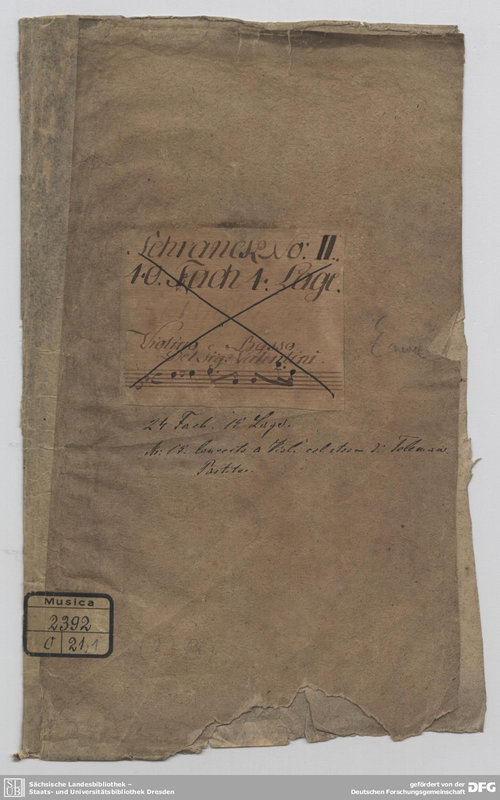 Schranck No: II.
10. Fach 1. Lage.
Violino Basso
Del Sigr Valentini.
24 Fach. 1e Lage.
Concerto a Viol: col strom. di Teleman
Partitur.
Musica
2392
O 21,1
SLUB
Sächsische Landesbibliothek –
Staats- und Universitätsbibliothek Dresden
gefördert von der
Deutschen Forschungsgemeinschaft
DFG